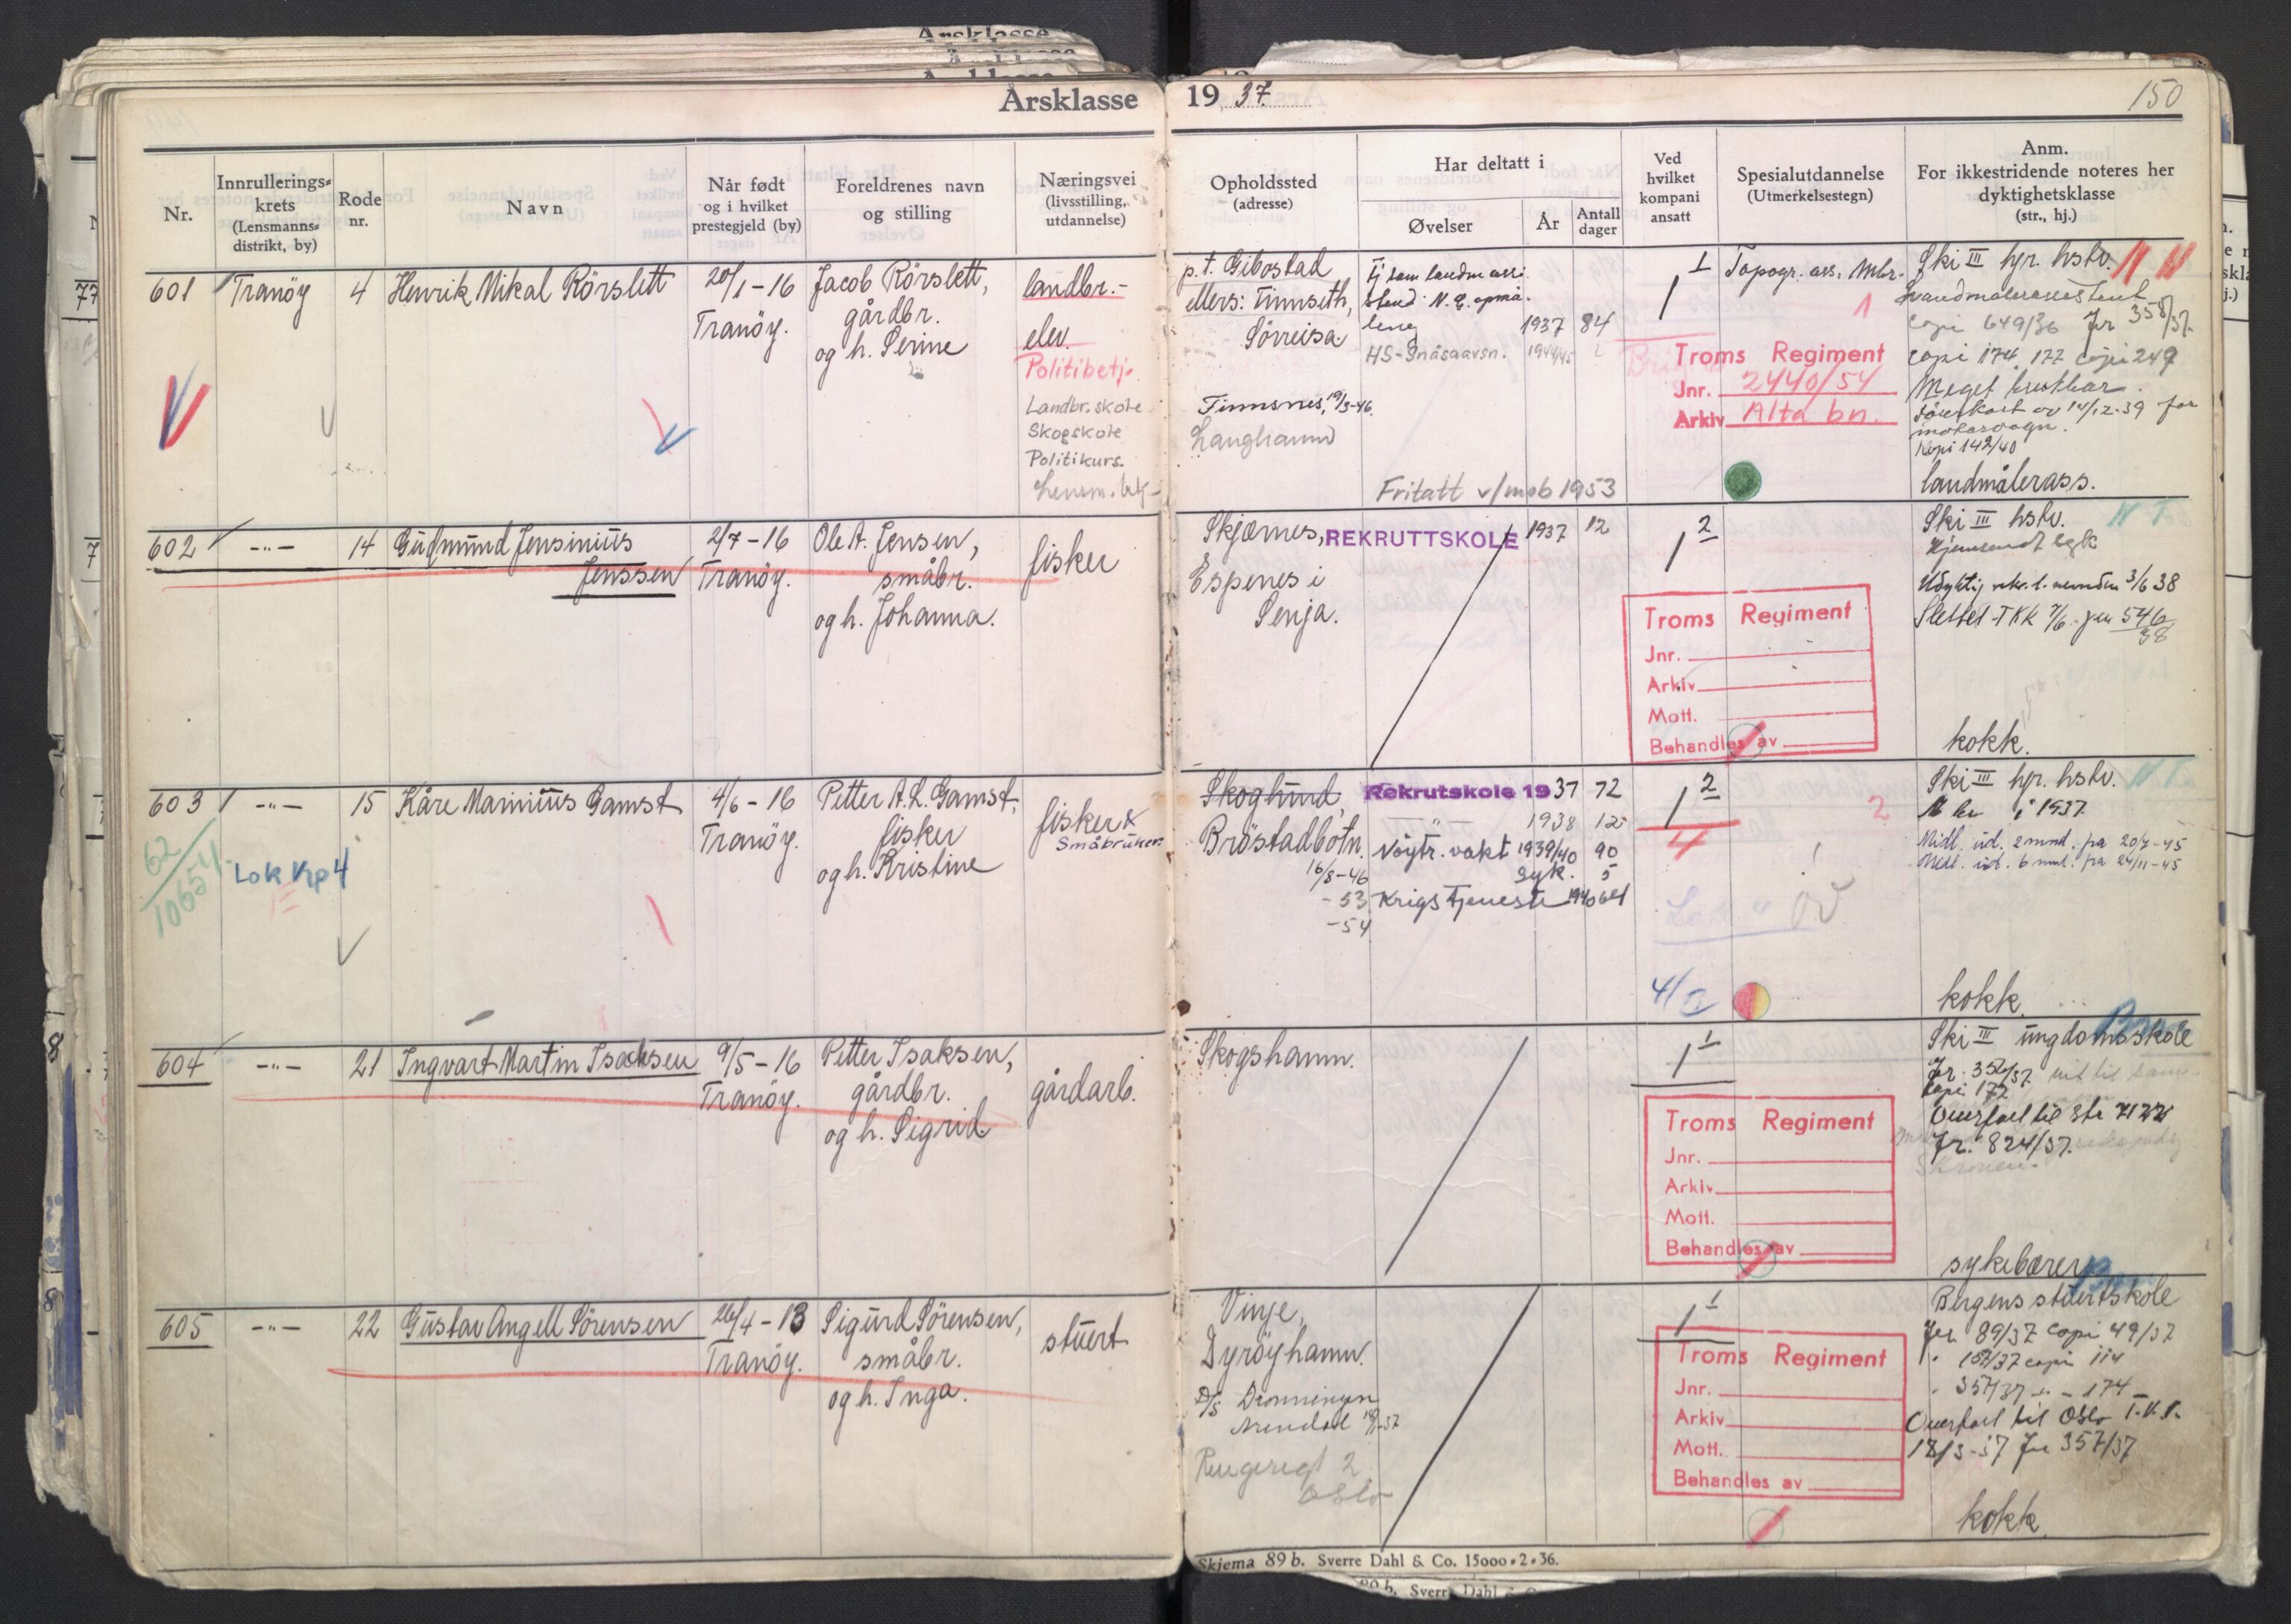 Årsklasse 1937. 150
Nr.
Innrullerings-
krets
(Lensmanns-
distrikt, by)
Rode
nr.
Navn
Når født
og i hvilket
prestegjeld (by)
Foreldrenes navn
og stilling
Næringsvei
(livsstilling,
utdannelse)
Opholdssted
(adresse)
Har deltatt i
Øvelser
År
Antall
dager
Ved
hvilket
kompani
ansatt
Spesialutdannelse
(Utmerkelsestegn)
Anm.
For ikkestridende noteres her
dyktighetsklasse
(str., hj.)
601 Tranöy 4 Henrik Mikal Rörslett
20/1-16
Tranöy.
Jacob Rörslett,
gårdbr.
og h. Perine
landbr.-
elev.
Politibetj.
Landbr.skole
Skogskole
Politikurs.
p.t. Gibostad
ellers: Finnseth,
Sörreisa.
Finnsnes, 19/3-46.
Langhamn
Tj som landm ass.
1937 84
HS-Snåsaavsn. 1944/45
Fritatt v/mob 1953
1 1
Topogr. ass.
1
Troms Regiment
Jnr. 2440/54
Arkiv Alta bn.
Ski III hjr. hstv.
Landmålerassistent
Copi 649/36 Jr 358/37.
Copi 174, 177 Copi 249
Meget brukbar.
Förerkort av 14/12-39 for
motorvogn.
Kopi 142/40
landmålerass.
602 -"- 14 Gudmund Jensinius
Jenssen
2/7-16
Tranöy.
Ole A. Jensen,
småbr.
og h. Johanna.
fisker
Skjærnes,
Espenes i
Senja.
REKRUTTSKOLE 1937 12
1 2
Troms Regiment
Jnr.
Arkiv
Mott.
Behandles av
Ski III hstv.
Hjemsendt syk
Udyktig 3/6 38
Slettet 7/6 546/38
kokk.
603 -"- 15 Kåre Marinius Gamst
4/6-16
Tranöy.
Petter A. L. Gamst,
fisker
og h. Kristine
fisker &
Småbruker
62/10654
Lok Kp 4
Skoglund,
Bröstadbotn.
16/8-46
-53
-54
Rekrutskole 1937 72
-"- 1938 12
Nöytr. vakt 1939/40 90
syk. 5
Krigstjeneste 1940 61
1 2
4
2
öv
Ski III hjr. hstv.
i 1937.
Midl. ud. 2 mnd. fra 20/7-45
ud. 6 mnd. fra 24/11-45
kokk.
604 -"- 21 Ingvart Martin Isaksen
9/5-16
Tranöy.
Petter Isaksen,
gårdbr.
og h. Sigrid.
gårdarb.
Skogshamn.
1 1
Troms Regiment
Jnr.
Arkiv
Mott.
Behandles av
Ski III ungdomsskole
Jr. 356/37
Copi 172
Overfört til
Jr. 824/37.
sykebærer
605 -"- 22 Gustav Angell Sörensen
26/4-13
Tranöy.
Sigurd Sörensen,
småbr.
og h. Inga.
stuert
Vinje,
Dyröyhamn.
D/S Dronningen
Arendal
Oslo
1 1
Troms Regiment
Jnr.
Arkiv
Mott.
Behandles av
Bergens stuertskole
Jr 89/37 Copi 49/37
157/37 copi 114
357/37 -"- 174
Overfört til Oslo
18/3-37 Jr 357/37
kokk.
Skjema 89 b. Sverre Dahl & Co. 15000-2-36.